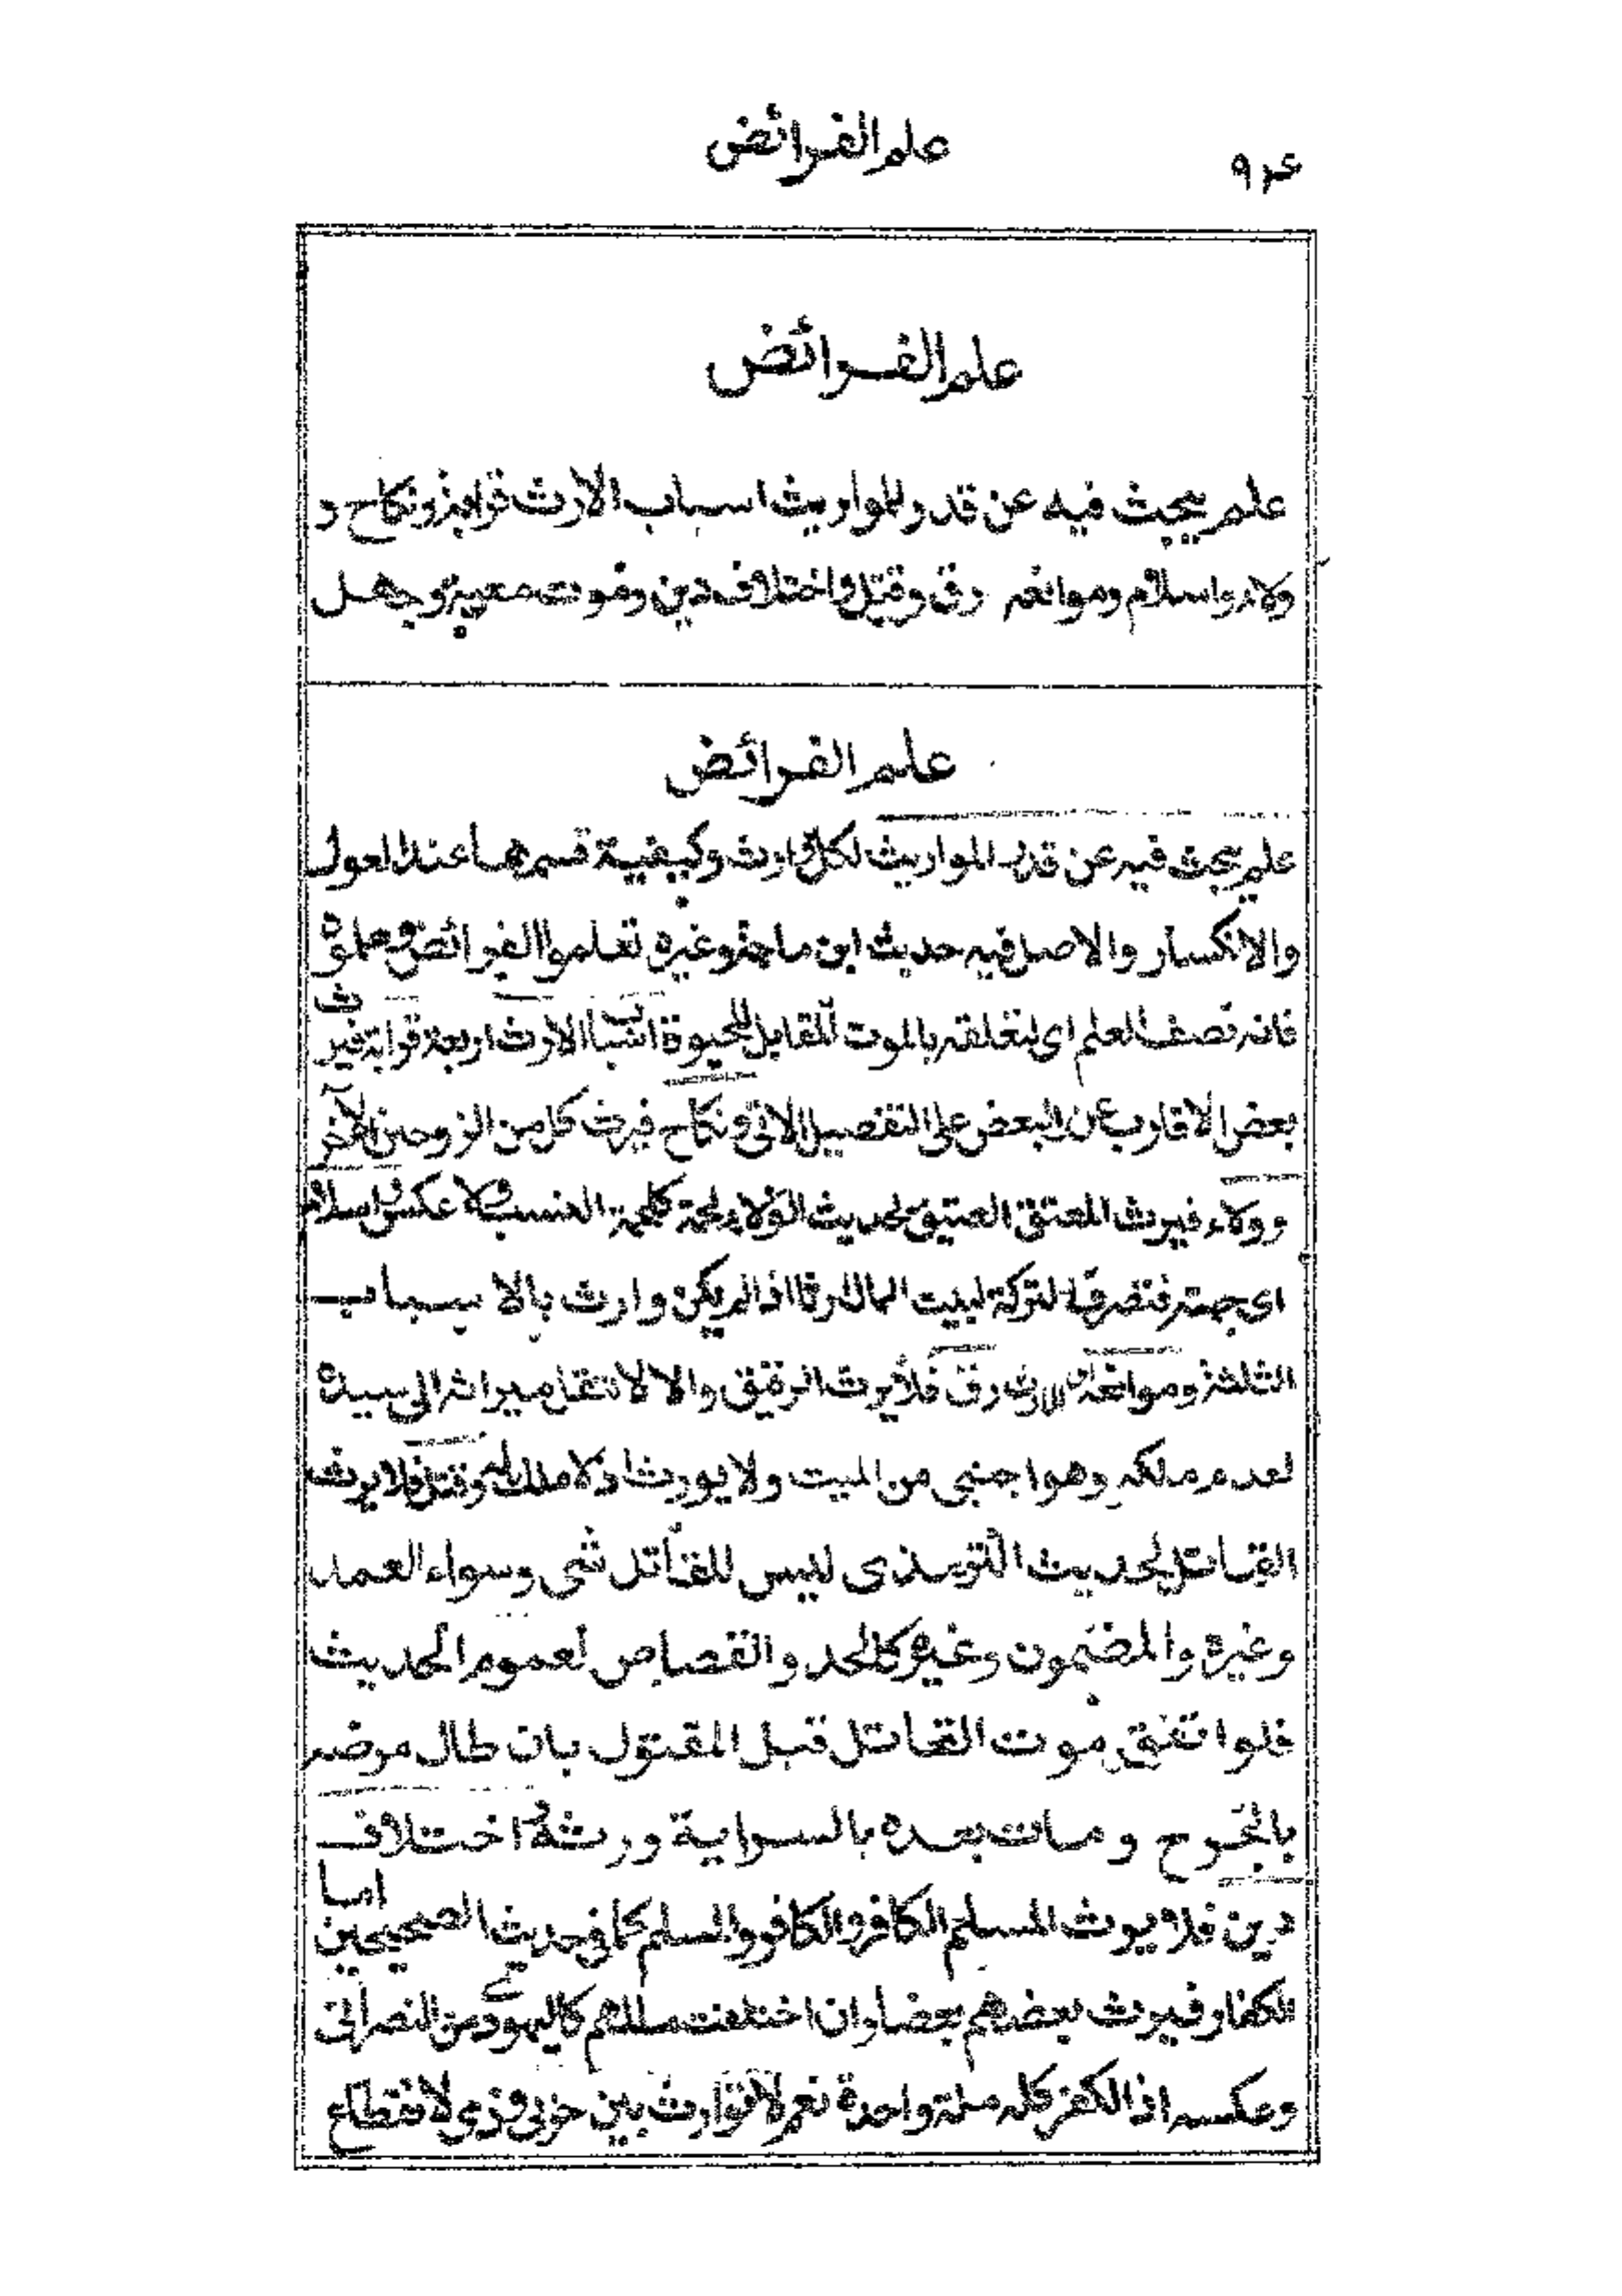 علم الفرائض
علم الفرائض
علم يبحث فيه عن قدر المواريث اسباب الارث قرابة ونكاح و
ولاء واسلام وموانعه رق وقتل واختلاف دين وموت معية وجهل
علم الفرائض
علم يبحث فيه عن قدر المواريث لكل وارث وكيفية قسمها عند العول
والانكسار والاصل فيه حديث ابن ماجة وغيره تعلموا الفرائض وعلموه
فانه نصف العلم اى لتعلقه بالموت المقابل للحيوة اسباب الارث اربعة قرابة فيرث
بعض الاقارب من البعض على التفصيل الاتى ونكاح فيرث كل من الزوجين الآخر
وولاء فيرث المعتق العتيق لحديث الولاء لحمة كلحمة النسب ولا عكس واسلام
اى جهته فتصرف التركة لبيت المال ارثا اذا لم يكن وارث بالاسباب
الثلثة وموانعه الارث رق فلا يرث الرقيق والا لانتقل ميراثه الى سيده
لعدم ملكه وهو اجنبى من الميت ولا يورث اذ لا ملك له وقتل فلا يرث
القاتل لحديث الترمذى ليس للقاتل شى وسواء العمد
وغيره والمضمون وغيره كالحد والقصاص لعموم الحديث
فلو اتفق موت القاتل قبل المقتول بان طال مرضه
بالجرح ومات بعده بالسراية ورثه واختلاف
دين فلا يرث المسلم الكافر والكافر المسلم كما فى حديث الصحيحين اما
الكفار فيرث بعضهم بعضا وان اختلفت مللهم كاليهودى من النصرانى
وعكسه اذ الكفر كله ملة واحدة نعم لا توارث بين حربى وذمى لانقطاع